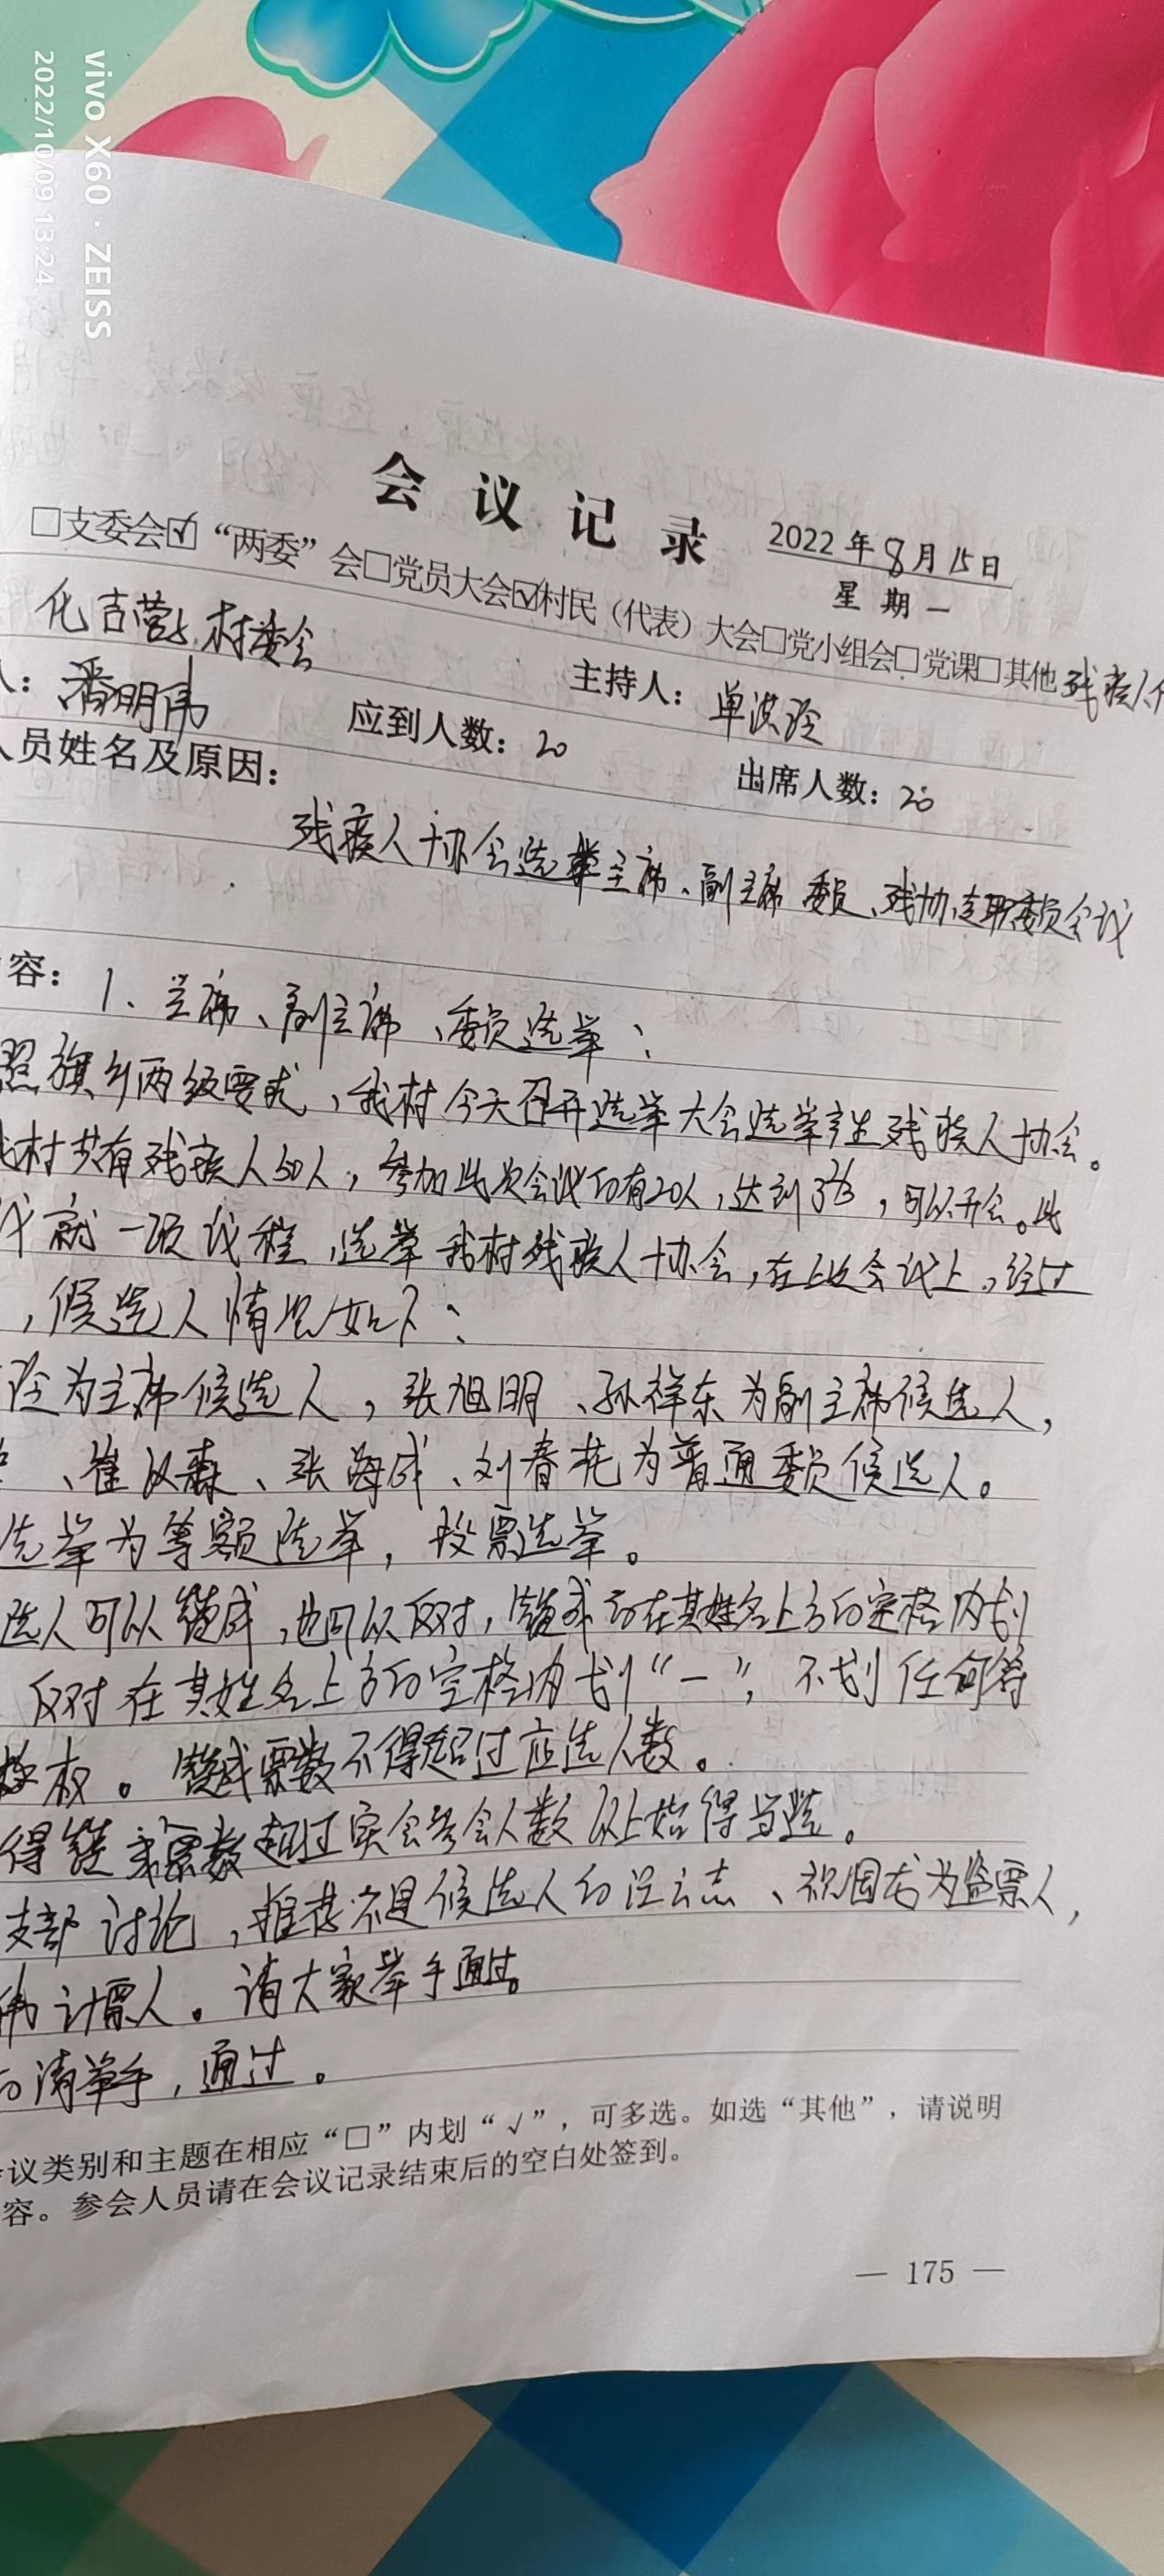 vivo X60 · ZEISS
2022/10/09 13:24
会议记录
2022年8月15日
星期一
□支委会☑“两委”会□党员大会☑村民（代表）大会□党小组会□党课□其他 残疾人
化吉营 村委会
主持人：单波玲
人：潘明伟
应到人数：20
出席人数：20
人员姓名及原因：
残疾人协会选举主席、副主席 委员、残协专职委员会议
容：1、主席、副主席、委员选举：
照旗乡两级要求，我村今天召开选举大会选举产生残疾人协会。
我村共有残疾人30人，参加此次会议的有20人，达到2/3，可以开会。此
就一项议程，选举我村残疾人协会，在上次会议上，经过
，候选人情况如下：
玲为主席候选人，张旭明、孙祥东为副主席候选人，
、崔汉森、张海成、刘春花为普通委员候选人。
选举为等额选举，投票选举。
选人可以赞成，也可以反对，赞成的在其姓名上方的空格内划
反对在其姓名上方的空格内划“一”，不划任何符
权。赞成票数不得超过应选人数。
得赞成票数超过实会参会人数以上始得当选。
支部讨论，推荐不是候选人的 志、祝国 为监票人，
伟计票人。请大家举手通过。
的请举手，通过。
议类别和主题在相应“□”内划“√”，可多选。如选“其他”，请说明
容。参会人员请在会议记录结束后的空白处签到。
— 175 —